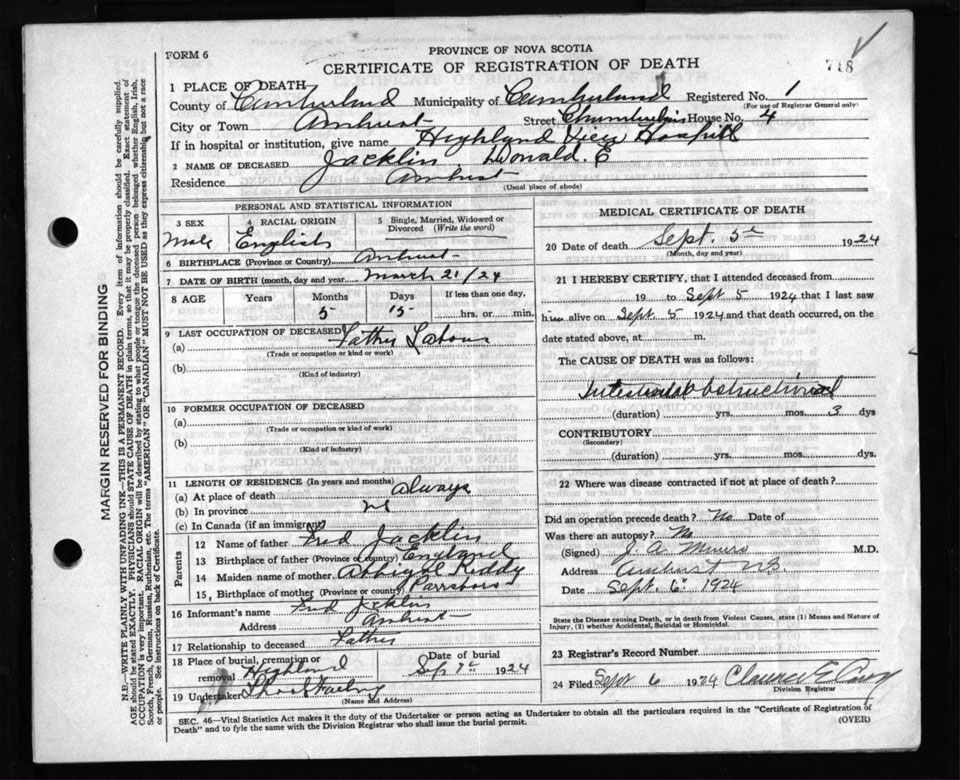 FORM 6
PROVINCE OF NOVA SCOTIA
CERTIFICATE OF REGISTRATION OF DEATH
718
1 PLACE OF DEATH
County of Cumberland Municipality of Cumberland Registered No. 1
(For use of Registrar General only)
City or Town Amherst Street House No. 4
If in hospital or institution, give name Highland View Hospital
2 NAME OF DECEASED Jacklin, Donald. E
Residence Amherst
(Usual place of abode)
PERSONAL AND STATISTICAL INFORMATION
3 SEX Male
4 RACIAL ORIGIN English
5 Single, Married, Widowed or Divorced (Write the word)
6 BIRTHPLACE (Province or Country) Amherst
7 DATE OF BIRTH (month, day and year) March 21/24
8 AGE Years Months Days If less than one day,
5 15 hrs. or min.
9 LAST OCCUPATION OF DECEASED
(a) Father Labour
(Trade or occupation or kind or work)
(b)
(Kind of industry)
10 FORMER OCCUPATION OF DECEASED
(a)
(Trade or occupation or kind of work)
(b)
(Kind of industry)
11 LENGTH OF RESIDENCE (In years and months)
(a) At place of death always
(b) In province
(c) In Canada (if an immigrant)
Parents
12 Name of father Fred Jacklin
13 Birthplace of father (Province or country) England
14 Maiden name of mother Abbigal Reddy
15, Birthplace of mother (Province or country) Parrsboro
16 Informant's name Fred Jcklin
Address Amherst
17 Relationship to deceased Father
18 Place of burial, cremation or removal Highland Date of burial Sep 7th 1924
19 Undertaker
(Name and Address)
MEDICAL CERTIFICATE OF DEATH
20 Date of death Sept. 5th 1924
(Month, day and year)
21 I HEREBY CERTIFY, that I attended deceased from
19 to Sept 5 1924 that I last saw
him alive on Sept 5 1924 and that death occurred, on
date stated above, at m.
The CAUSE OF DEATH was as follows:
Intestinal obstruction
(duration) yrs. mos. 3 dys
CONTRIBUTORY
(Secondary)
(duration) yrs. mos. dys.
22 Where was disease contracted if not at place of death?
Did an operation precede death? No Date of
Was there an autopsy? No
(Signed) J. A. Munro M.D.
Address Amherst N.S.
Date Sept. 6th 1924
State the Disease causing Death, or in death from Violent Causes, state (1) Means and Nature of
Injury, (2) whether Accidental, Suicidal or Homicidal.
23 Registrar's Record Number
24 Filed Sept 6 1924 Clarence E.
Division Registrar
SEC. 46—Vital Statistics Act makes it the duty of the Undertaker or person acting as Undertaker to obtain all the particulars required in the "Certificate of Registration of
Death" and to fyle the same with the Division Registrar who shall issue the burial permit.
(OVER)
MARGIN RESERVED FOR BINDING
N.B.—WRITE PLAINLY WITH UNFADING INK—THIS IS A PERMANENT RECORD. Every item of information should be carefully supplied.
AGE should be stated EXACTLY. PHYSICIANS should STATE CAUSE OF DEATH in plain terms, so that it may be properly classified. Exact statement of
OCCUPATION is very important. RACIAL ORIGIN will be described by stating to what people or tongue the deceased person belonged whether English, Irish,
Scotch, French, German, Russian, Ruthenian, etc. The terms "AMERICAN" OR "CANADIAN" MUST NOT BE USED as they express citizenship but not a race
or people. See instructions on back of Certificate.